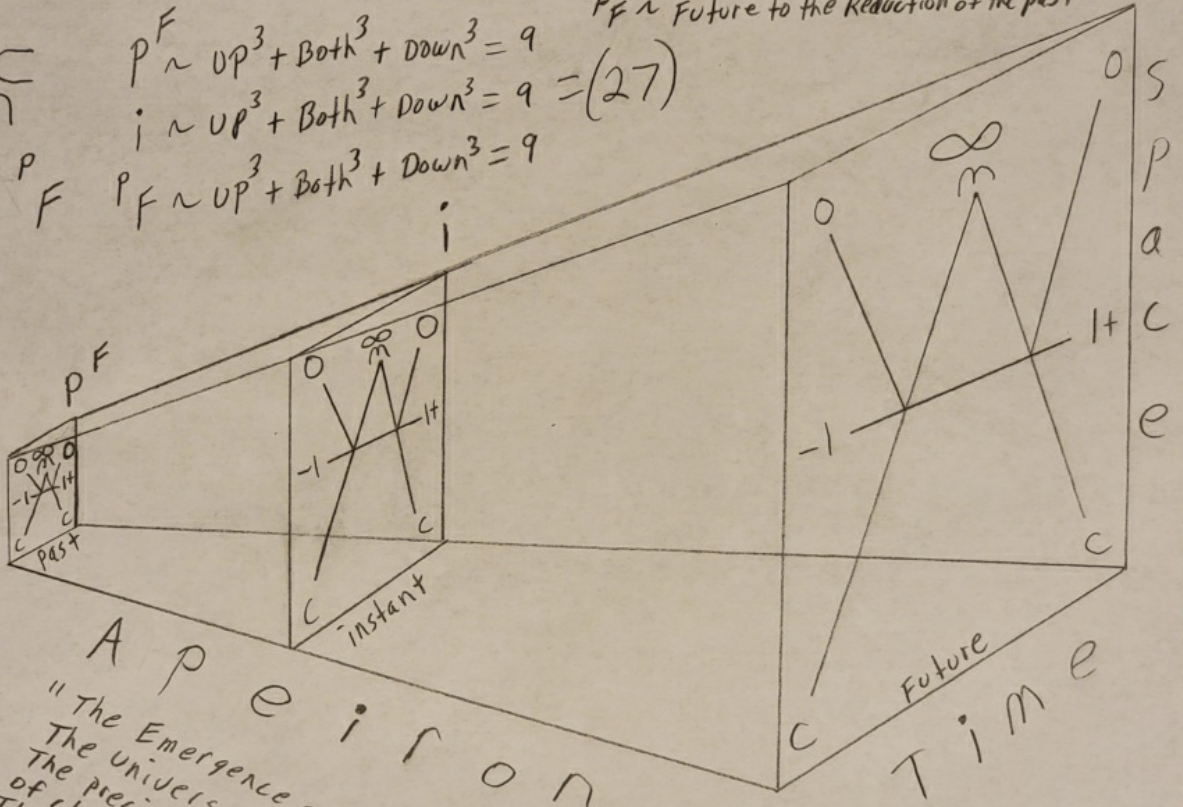 PF ~ Future to the Reduction of the past
P^F ~ UP³ + Both³ + Down³ = 9
i ~ UP³ + Both³ + Down³ = 9 = (27)
PF ~ UP³ + Both³ + Down³ = 9
P
F
i
P^F
O ∞ O
n
-1 1+
C C
past
O ∞ O
n
-1 1+
C C
instant
O ∞ O
n
-1 1+
C C
Future
Space
Apeiron
Time
"The Emergence
The univers
The preci
of